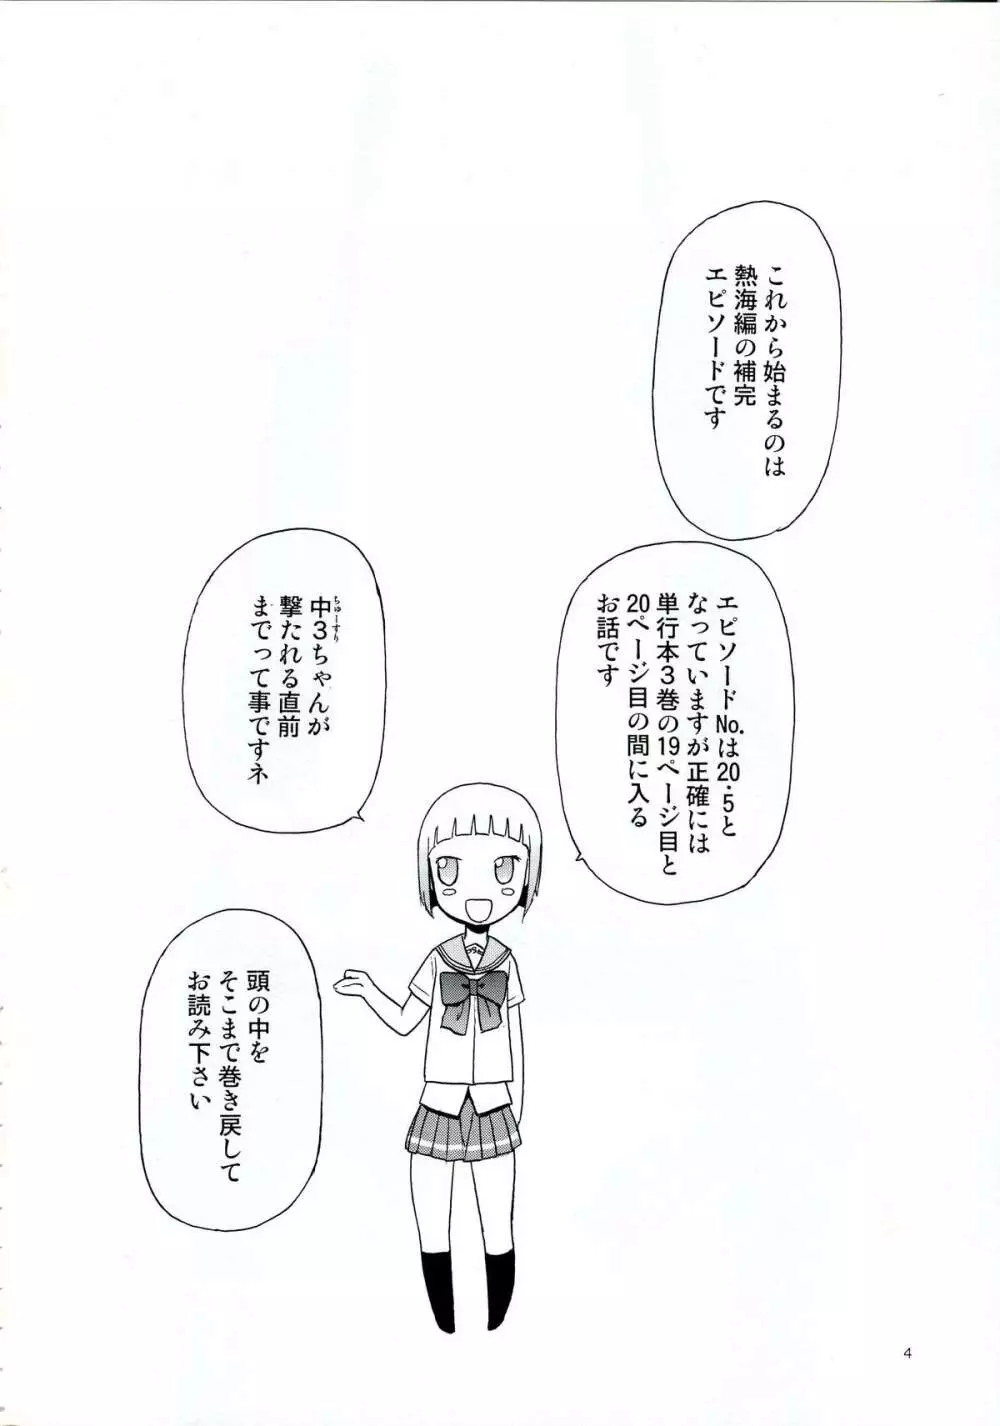 これから始まるのは
熱海編の補完
エピソードです
エピソードNo.は20・5と
なっていますが正確には
単行本3巻の19ページ目と
20ページ目の間に入る
お話です
中3ちゃんが
ちゅーすり
撃たれる直前
までって事ですネ
頭の中を
そこまで巻き戻して
お読み下さい
4